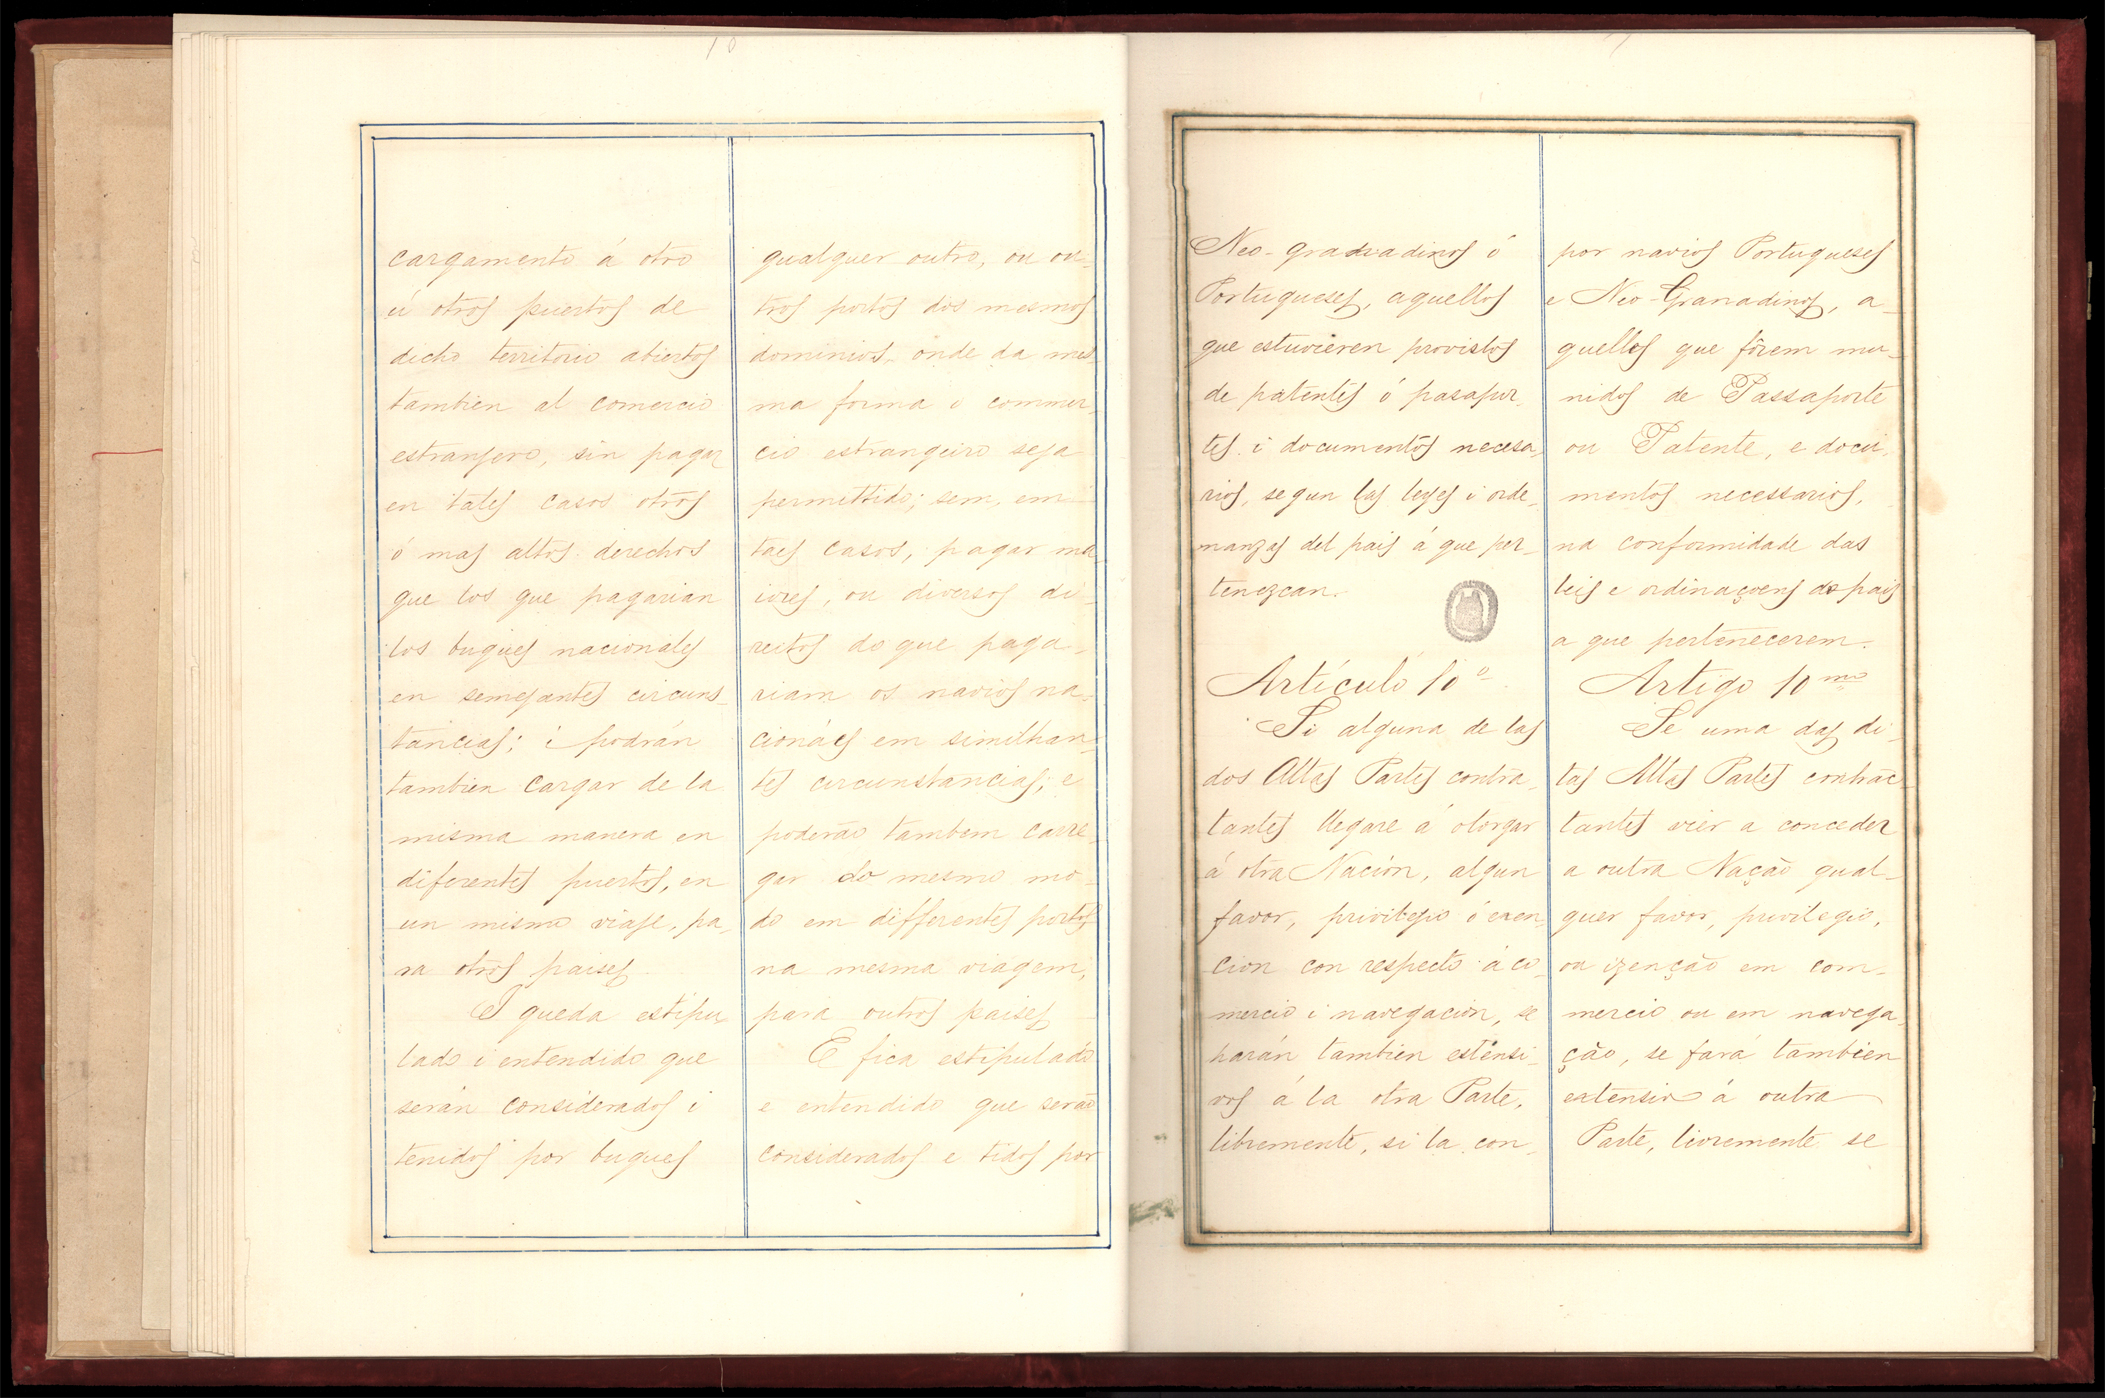 10
cargamento á otro
ú otros puertos de
dicho territorio abiertos
tambien al comercio
estranjero, sin pagar
en tales casos otros
ó mas altos derechos
que los que pagarian
los buques nacionales
en semejantes circuns-
tancias; i podrán
tambien cargar de la
misma manera en
diferentes puertos, en
un mismo viaje, pa-
ra otros paises
I queda estipu
lado i entendido que
serán considerados i
tenidos por buques
qualquer outro, ou ou-
tros portos dos mesmos
dominios, onde da mes-
ma forma o commer-
cio estrangeiro seja
permettido; sem, em
taes casos, pagar ma-
iores, ou diversos di-
reitos do que paga-
riam os navios na-
cionáes em similhan-
tes circunstancias; e
poderão tambem carre-
gar do mesmo mo-
do em differentes portos
na mesma viagem,
para outros paises
E fica estipulado
e entendido que serão
considerados e tidos por
Neo-granadinos ó
Portugueses, aquellos
que estuvieren provistos
de patentes ó pasapor-
tes i documentos necesa-
rios, segun las leyes i orde-
nanzas del pais á que per-
tenezcan.
Artículo 10º
Si alguna de las
dos Altas Partes contra-
tantes llegare á otorgar
á otra Nación, algun
favor, privilejio ó exen-
cion con respecto á co-
mercio i navegación, se
harán tambien estensi-
vos á la otra Parte,
libremente, si la con-
por navios Portugueses
e Neo-Granadinos, a-
quelles que fôrem mu-
nidos de Passaporte
ou Patente, e docu-
mentos necessarios,
na conformidade das
leis e ordinaçoens do paiz
a que pertenecerem.
Artigo 10mo
Se uma das di-
tas Altas Partes contrac-
tantes vier a conceder
a outra Nação qual-
quer favor, privilegio,
ou izenção em com-
mercio ou em navega-
ção, se fará tambien
extensivo á outra
Parte, livremente se